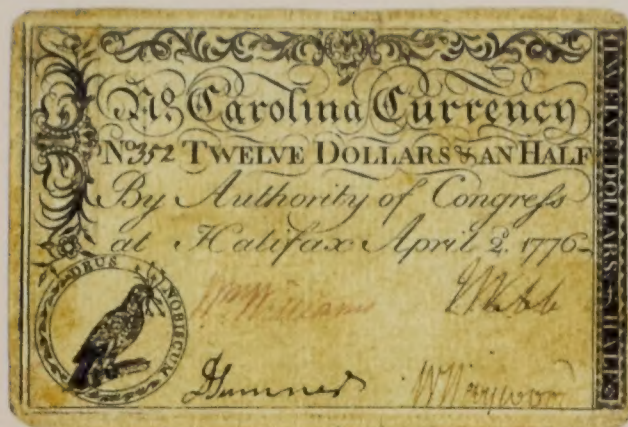 No. Carolina Currency
No 352 TWELVE DOLLARS & AN HALF
By Authority of Congress
at Halifax April 2. 1776
DEUS NOBISCUM
Wm Williams
J Webb
J Sumner
W Haywood
TWELVE DOLLARS & HALF